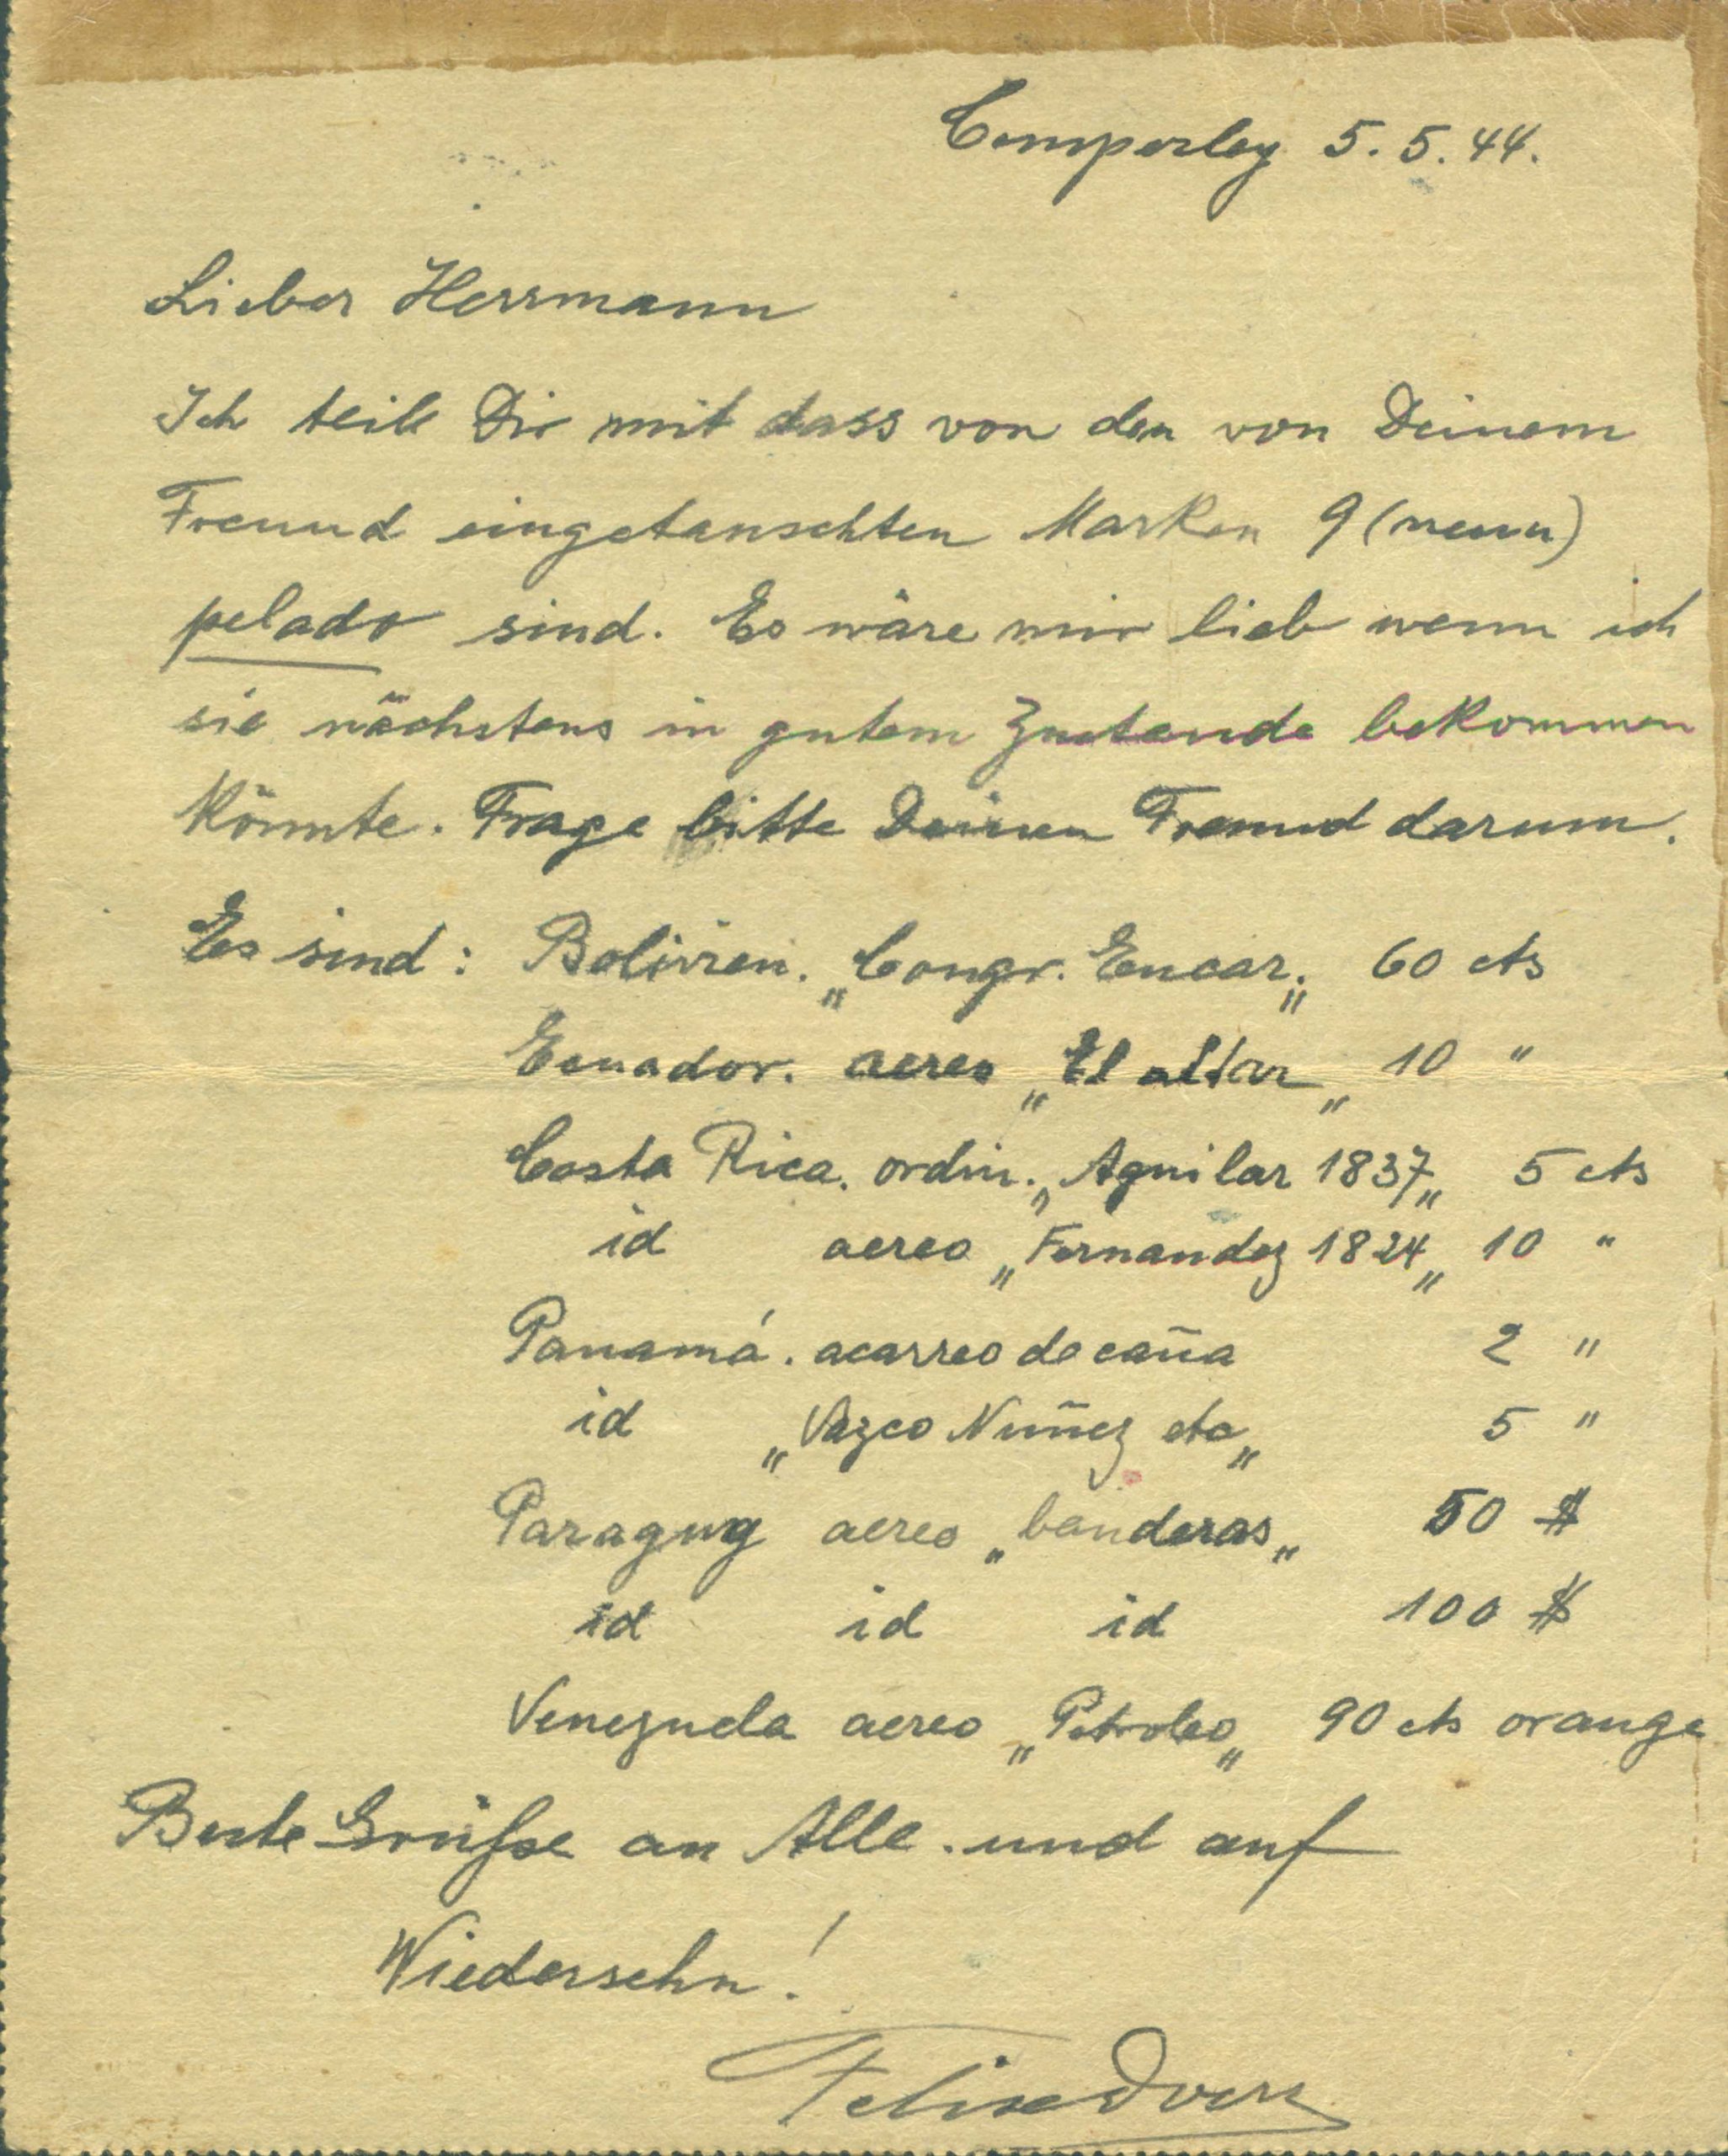 Temperley 5.5.44.
Lieber Herrmann
Ich teile Dir mit dass von den von Deinem
Freund eingetauschten Marken 9 (neun)
pelado sind. Es wäre mir lieb wenn ich
sie nächstens in gutem Zustande bekommen
könnte. Frage bitte Deinen Freund darum.
Es sind: Bolivien. „Congr. Eucar.„ 60 cts
Ecuador. aereo „El altar„ 10 "
Costa Rica. ordin. „Aguilar 1837„ 5 cts
id aereo „Fernandez 1824„ 10 "
Panamá. acarreo de caña 2 "
id „Vazco Nuñez etc„ 5 "
Paraguay aereo „banderas„ 50 $
id id id 100 $
Venezuela aereo „Petroleo„ 90 cts orange
Beste Grüsse an Alle. und auf
Wiedersehn!